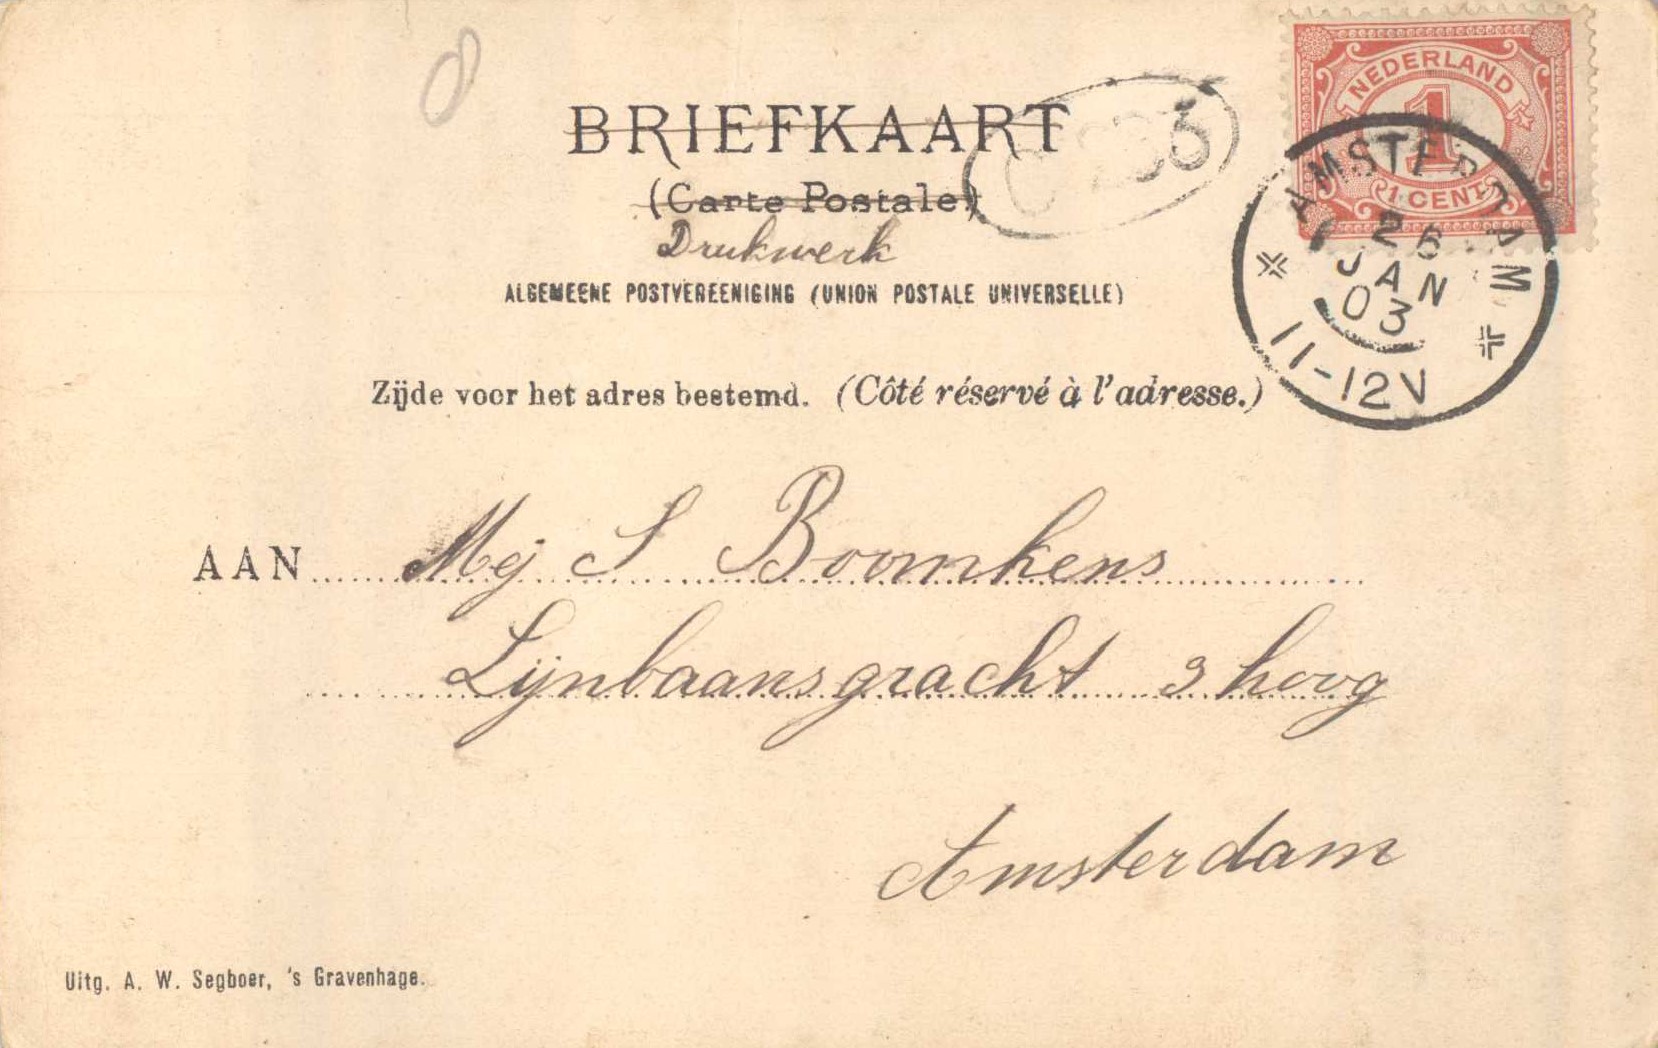 BRIEFKAART
(Carte Postale)
Drukwerk
ALGEMEENE POSTVEREENIGING (UNION POSTALE UNIVERSELLE)
Zijde voor het adres bestemd. (Côté réservé à l'adresse.)
NEDERLAND
1
1 CENT
AMSTERDAM
26
JAN
03
11-12V
AAN Mej S Boomkens
Lijnbaansgracht 3 hoog
Amsterdam
Uitg. A. W. Segboer, 's Gravenhage.